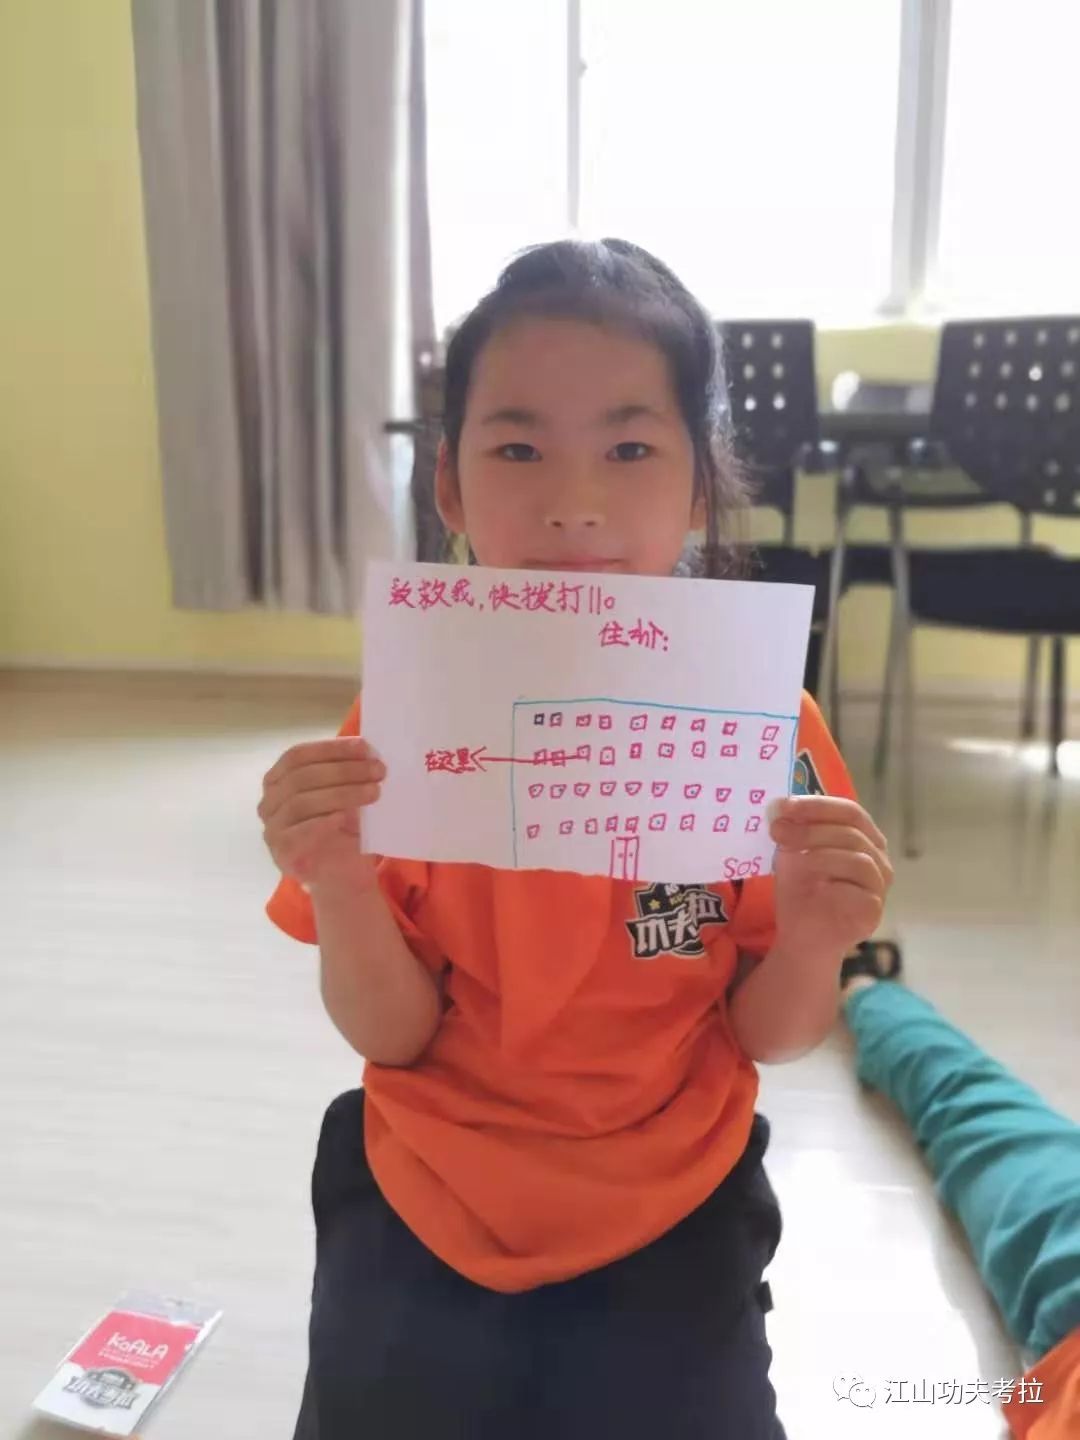 救救我,快拨打110
住址:
在这里
SOS
KOALA
江山功夫考拉